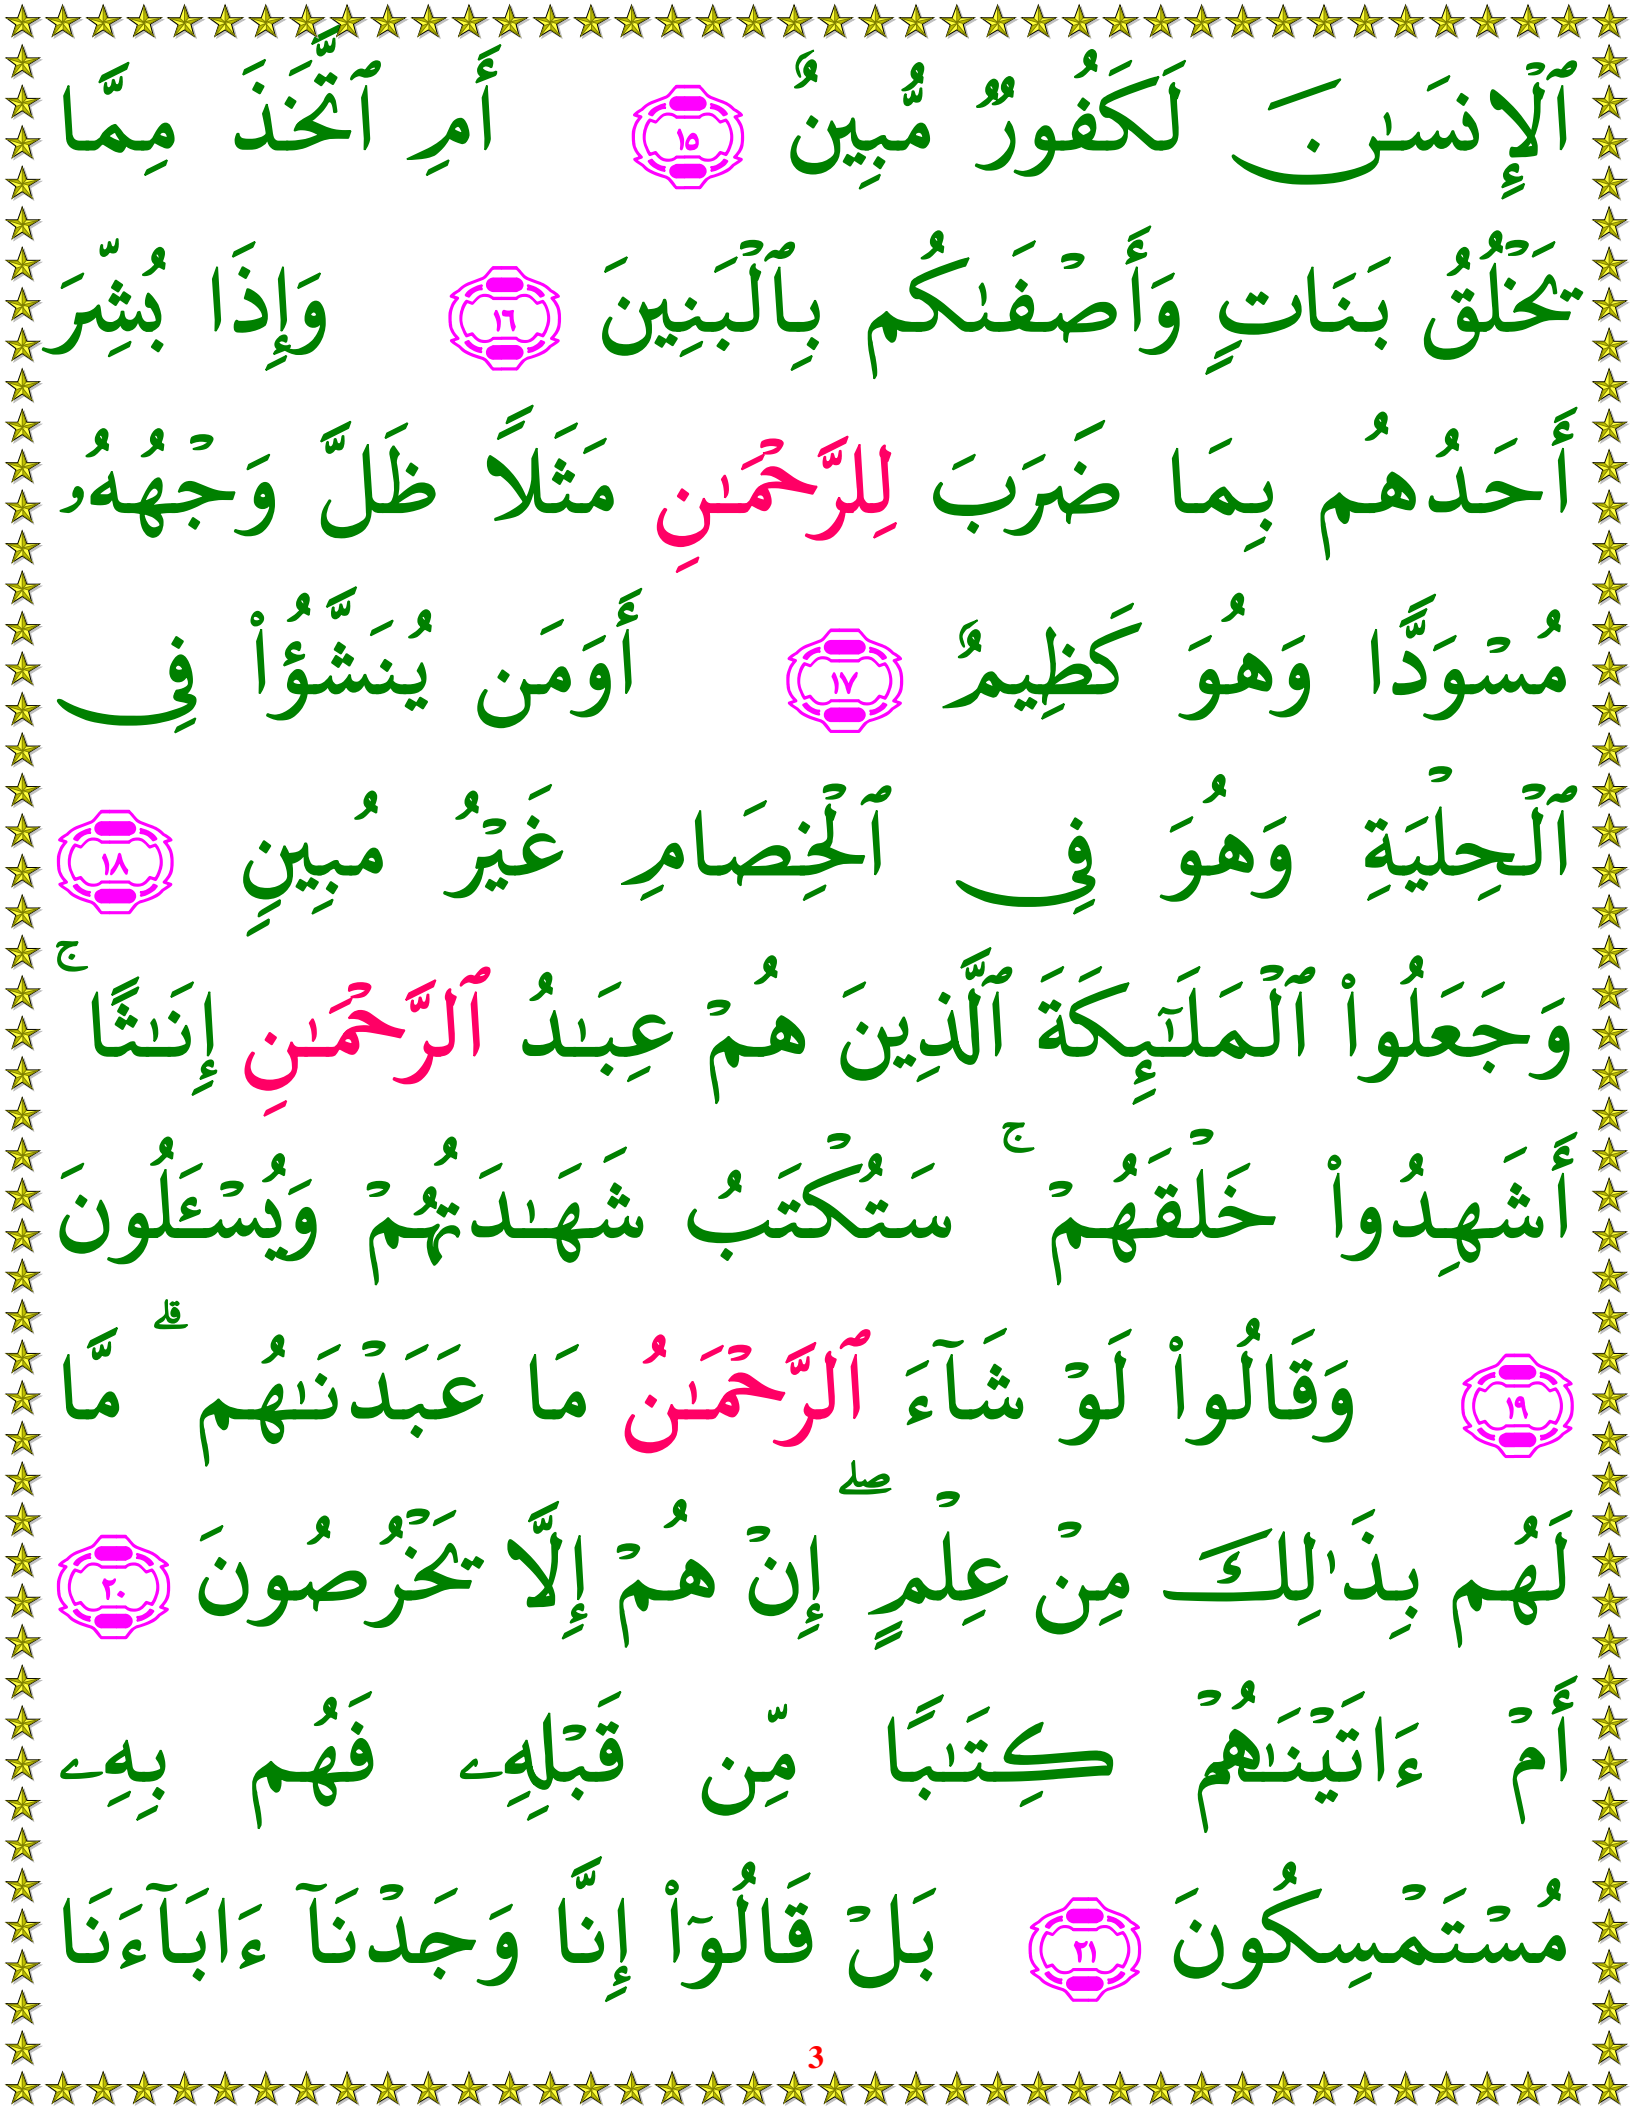 ٱلْإِنسَـٰنَ لَكَفُورٌ مُّبِينٌ ١٥ أَمِ ٱتَّخَذَ مِمَّا
يَخْلُقُ بَنَاتٍ وَأَصْفَىٰكُم بِٱلْبَنِينَ ١٦ وَإِذَا بُشِّرَ
أَحَدُهُم بِمَا ضَرَبَ لِلرَّحْمَـٰنِ مَثَلًا ظَلَّ وَجْهُهُۥ
مُسْوَدًّا وَهُوَ كَظِيمٌ ١٧ أَوَمَن يُنَشَّؤُا۟ فِى
ٱلْحِلْيَةِ وَهُوَ فِى ٱلْخِصَامِ غَيْرُ مُبِينٍ ١٨
وَجَعَلُوا۟ ٱلْمَلَـٰٓئِكَةَ ٱلَّذِينَ هُمْ عِبَـٰدُ ٱلرَّحْمَـٰنِ إِنَـٰثًا ۚ
أَشَهِدُوا۟ خَلْقَهُمْ ۚ سَتُكْتَبُ شَهَـٰدَتُهُمْ وَيُسْـَٔلُونَ
١٩ وَقَالُوا۟ لَوْ شَآءَ ٱلرَّحْمَـٰنُ مَا عَبَدْنَـٰهُم ۗ مَّا
لَهُم بِذَٰلِكَ مِنْ عِلْمٍ ۖ إِنْ هُمْ إِلَّا يَخْرُصُونَ ٢٠
أَمْ ءَاتَيْنَـٰهُمْ كِتَـٰبًا مِّن قَبْلِهِۦ فَهُم بِهِۦ
مُسْتَمْسِكُونَ ٢١ بَلْ قَالُوٓا۟ إِنَّا وَجَدْنَآ ءَابَآءَنَا
3